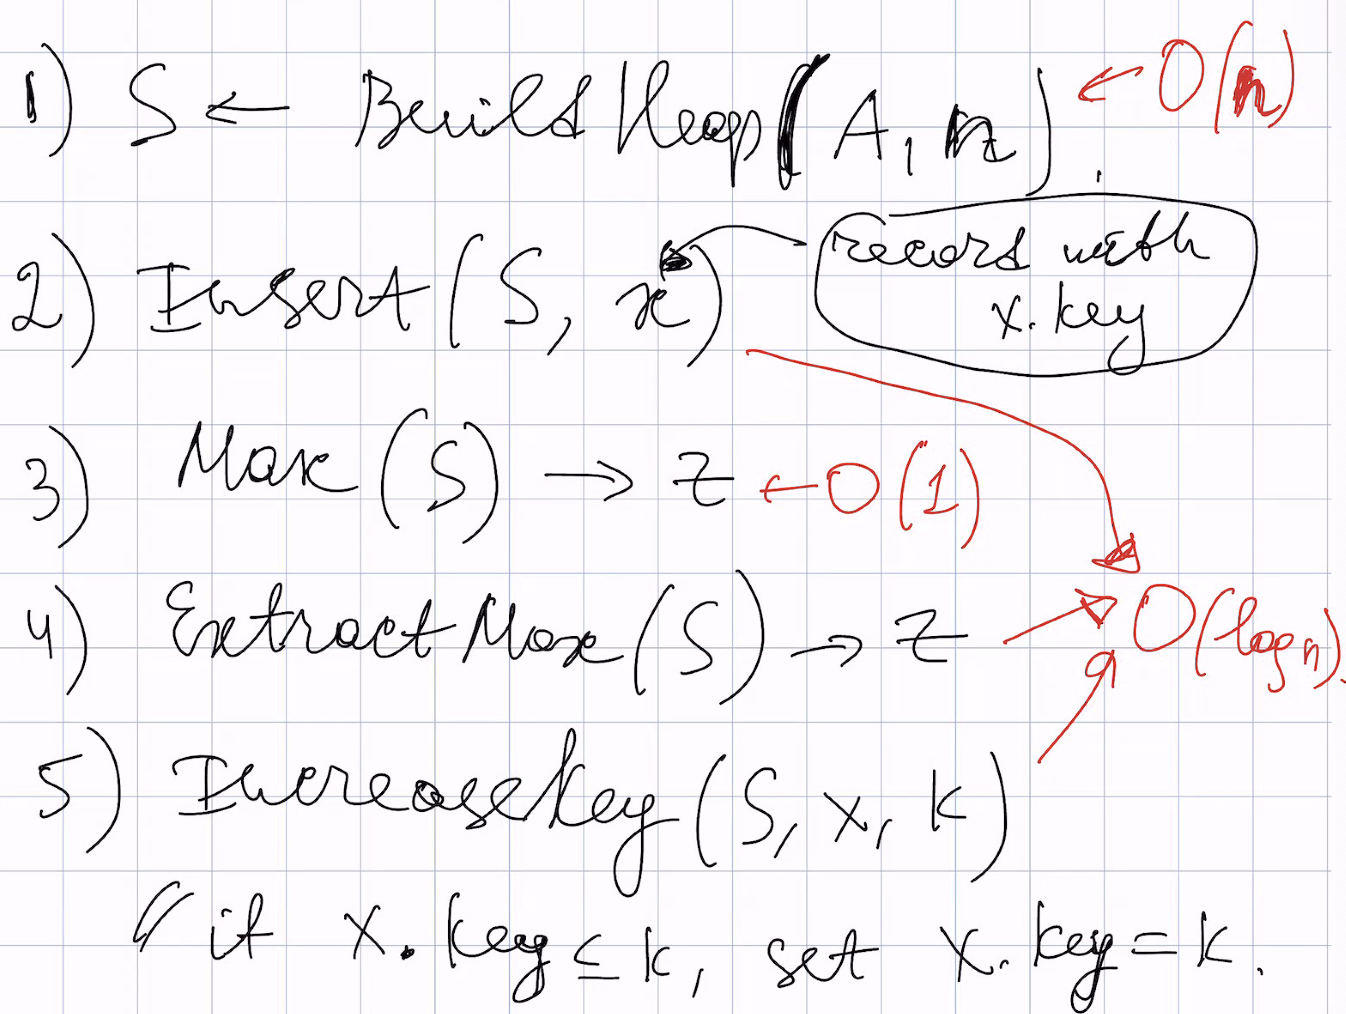 1) S ← BuildHeap(A, n). ← O(n)
2) Insert(S, x) → record with
x.key
3) Max(S) → z ← O(1)
4) ExtractMax(S) → z → O(log n).
5) IncreaseKey(S, x, k)
// if x.key ≤ k, set x.key = k.